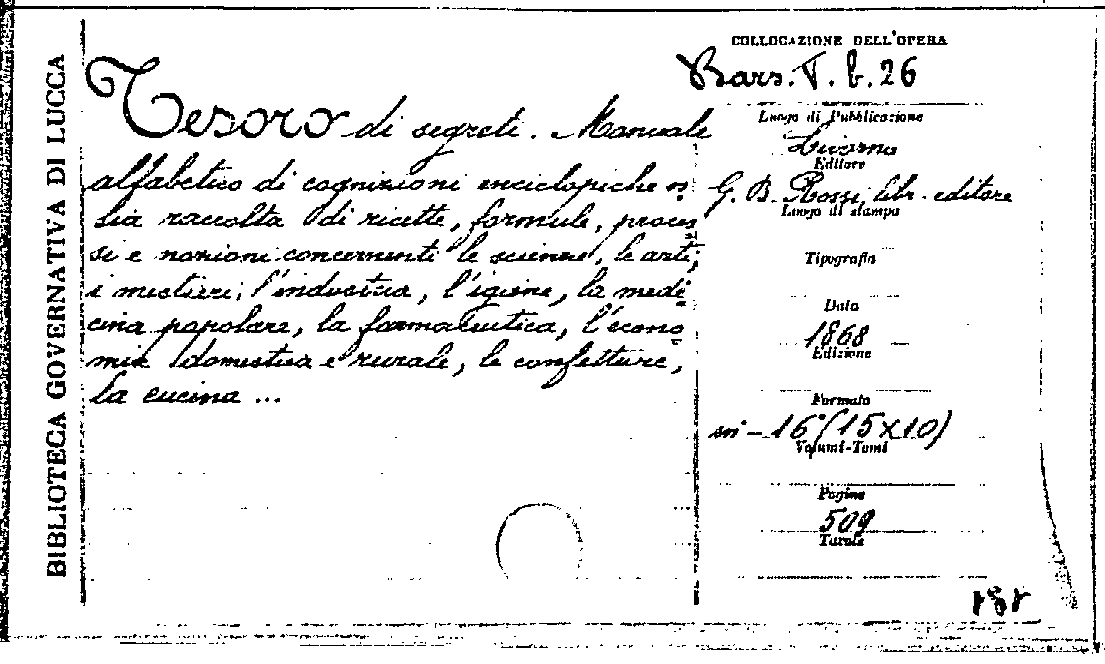 BIBLIOTECA GOVERNATIVA DI LUCCA
Tesoro di segreti. Manuale
alfabetico di cognizioni enciclopiche os
sia raccolta di ricette, formule, proces
si e nozioni concernenti le scienze, le arti,
i mestieri, l'industria, l'igiene, la medi
cina popolare, la farmaceutica, l'econo
mia domestica e rurale, le confetture,
la cucina ...
COLLOCAZIONE DELL'OPERA
Bars. T. b. 26
Luogo di Pubblicazione
Livorno
Editore
G. B. Rossi, libr. editore
Luogo di stampa
Tipografia
Data
1868
Edizione
Formato
in-16°(15x10)
Volumi-Tomi
Pagine
509
Tavole